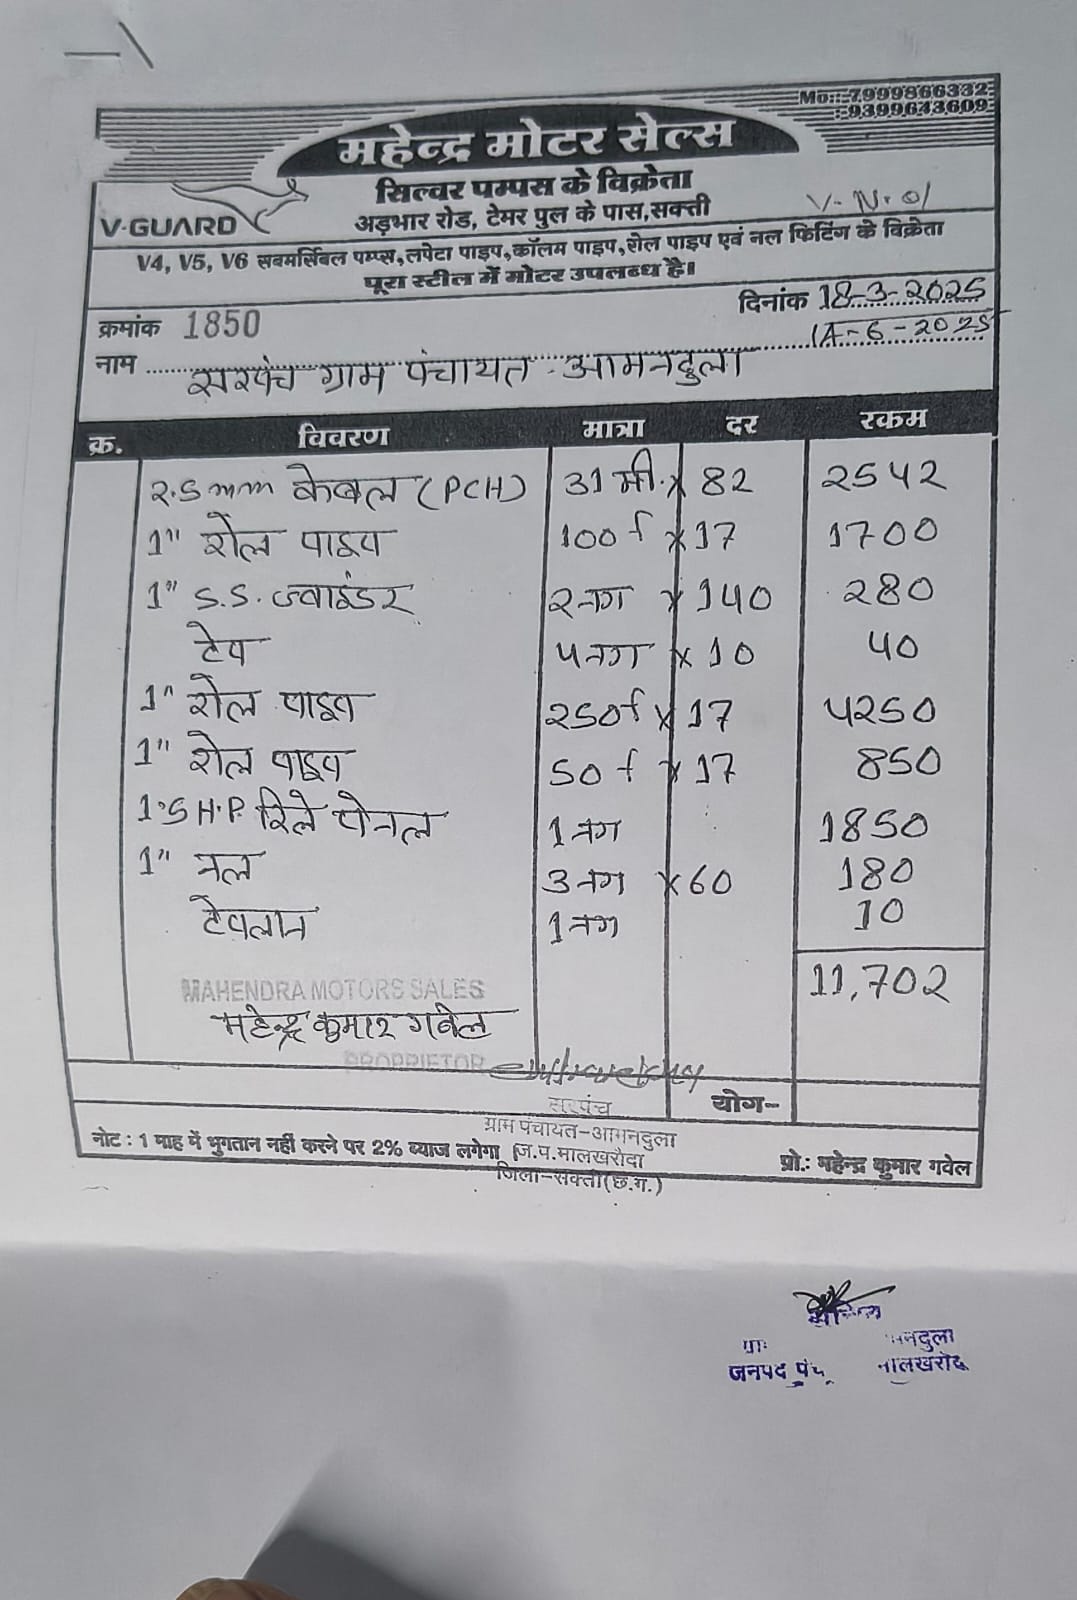 Mo.:-7999866332
:-9399643609
महेन्द्र मोटर सेल्स
सिल्वर पम्पस के विक्रेता
V-GUARD
अड़भार रोड, टेमर पुल के पास, सक्ती
V.N.01
V4, V5, V6 सबमर्सिबल पम्प्स, लपेटा पाइप, कॉलम पाइप, रोल पाइप एवं नल फिटिंग के विक्रेता
पूरा स्टील में मोटर उपलब्ध है।
क्रमांक 1850
दिनांक 18-3-2025
14-6-2025
नाम सरपंच ग्राम पंचायत आमनदुला
क्र. विवरण मात्रा दर रकम
2.5 mm केबल (PCH) 31 मी. x 82 2542
1" रोल पाइप 100 f x 17 1700
1" S.S. ज्वाइंडर 2 नग x 140 280
टेप 4 नग x 10 40
1" रोल पाइप 250 f x 17 4250
1" रोल पाइप 50 f x 17 850
1.5 H.P. रिले पेनल 1 नग 1850
1" नल 3 नग x 60 180
टेपलान 1 नग 10
11,702
MAHENDRA MOTORS SALES
महेन्द्र कुमार गबेल
PROPRIETOR
योग-
सरपंच
ग्राम पंचायत-आमनदुला
ज.प.मालखरौदा
जिला-सक्ती(छ.ग.)
नोट : 1 माह में भुगतान नहीं करने पर 2% ब्याज लगेगा
प्रो.: महेन्द्र कुमार गवेल
जनपद